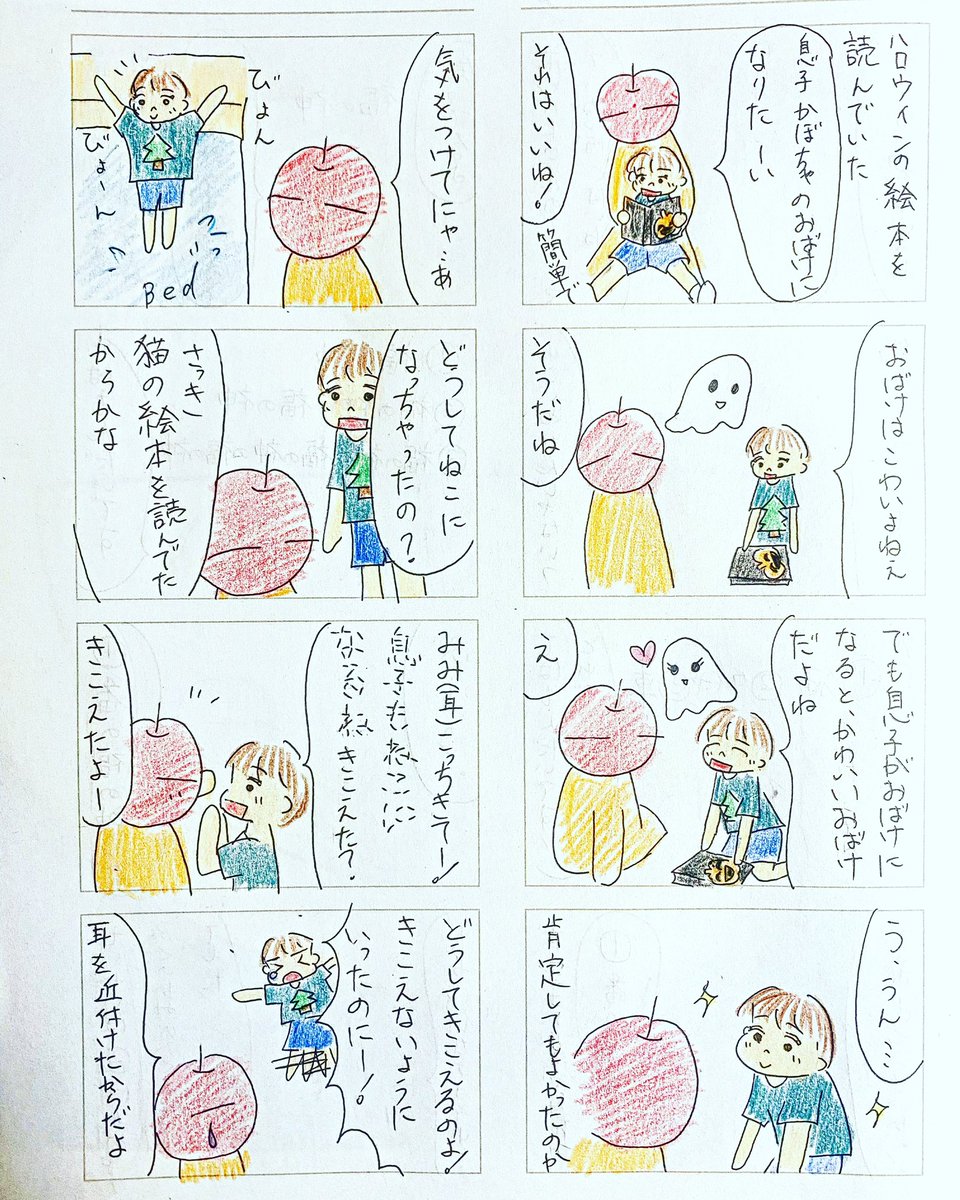 ハロウィンの絵本を
読んでいた
息子かぼちゃのおばけに
なりたーい
それはいいね!
簡単で
おばけはこわいよねぇ
そうだね
でも息子がおばけに
なると、かわいいおばけ
だよね
え
う、うん…
肯定してもよかったのか
気をつけてにゃあ
びょん
びょーん
Bed
どうしてねこに
なっちゃったの?
さっき
猫の絵本を読んでた
からかな
みみ(耳)こっちきてー!
息子も
きこえた?
きこえたよー
どうしてきこえるのよ!
きこえないように
いったのにー!
耳を近付けたからだよ